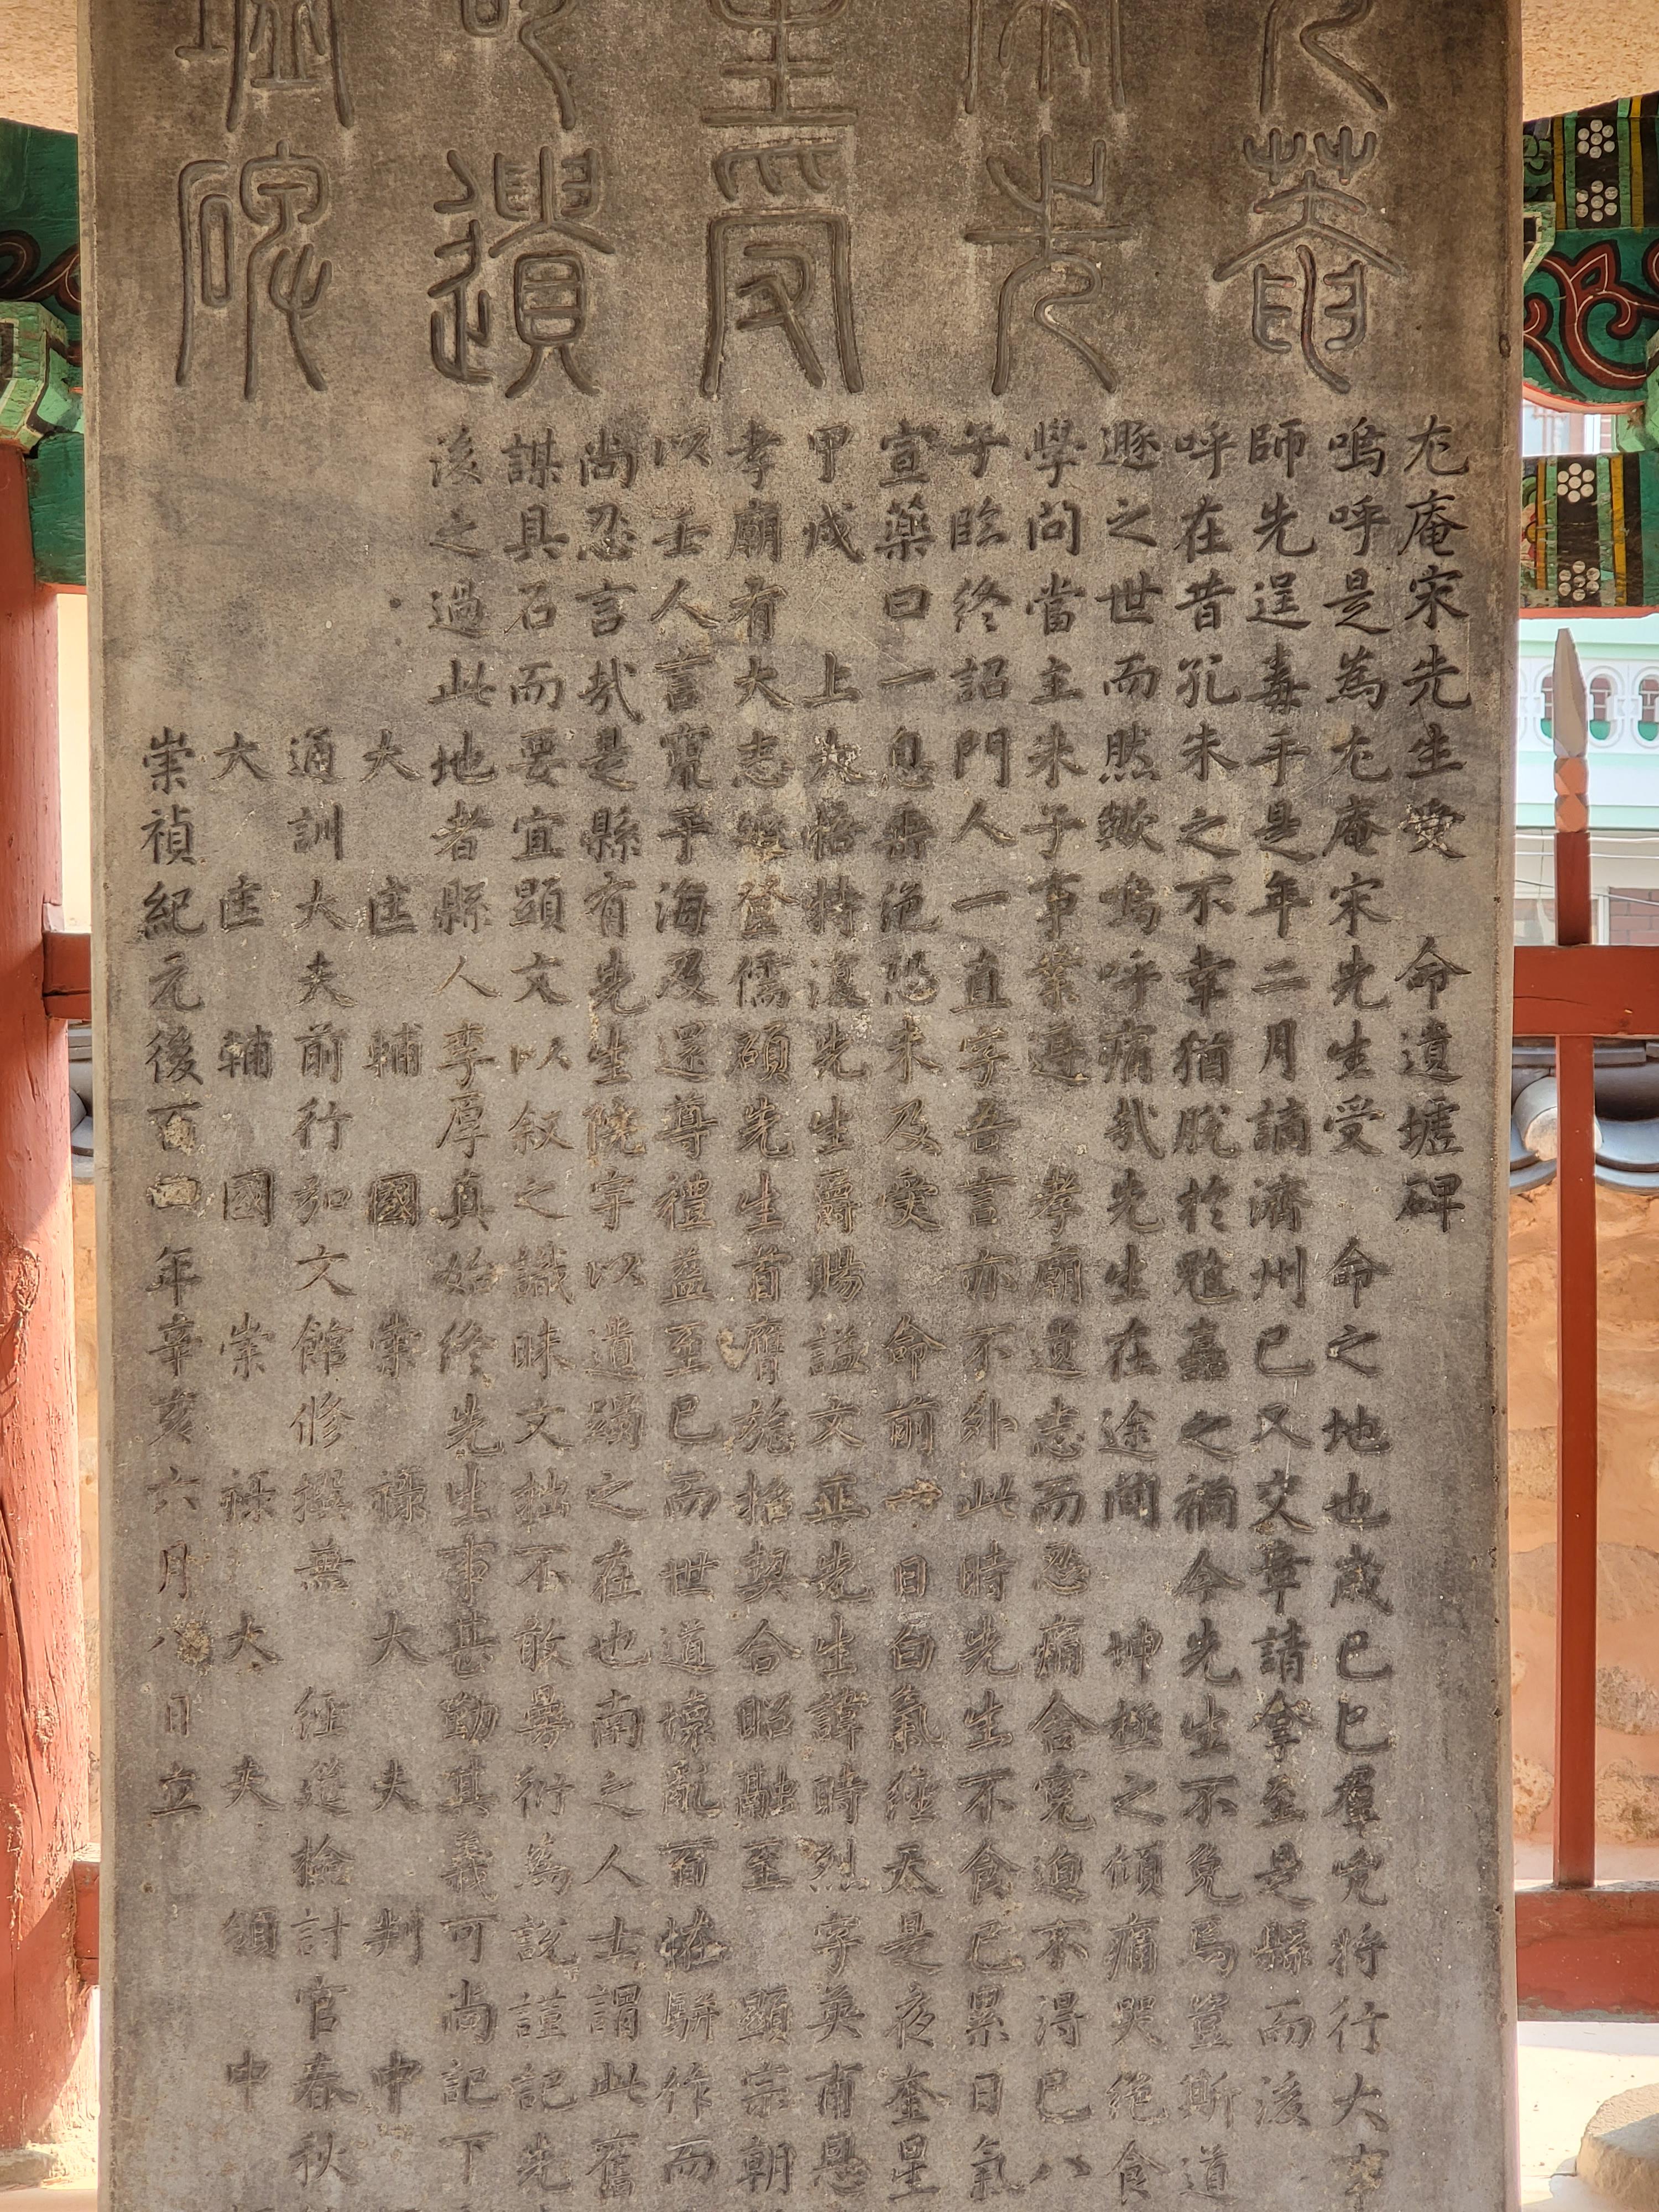 菴
先
受
遺
碑
尤庵宋先生受 命遺墟碑
嗚呼是爲尤庵宋先生受 命之地也歲己巳羣兇將行大事
師先逞毒手是年二月謫濟州已又交章請拿至是縣而後
呼在昔孔朱之不幸猶脫於魋嚞之禍今先生不免焉豈斯道
遯之世而然歟嗚呼痛哉先生在途聞 坤極之傾痛哭絶食
學問當主朱子事業遵 孝廟遺志而忍痛含寃迫不得已八
子臨終詔門人一一直字吾言亦不外此時先生不食已累日氣
宣藥曰一息垂絶恐未及受 命前一日白氣經天是夜奎星
甲戌 上大悟特復先生爵賜謚文正先生諱時烈字英甫恩
孝廟有大志登儒碩先生首膺旌招契合昭融至 顯宗朝
以壬人言竄乎海及還尊禮益至已而世道壞亂百怪騈作而
尚忍言哉是縣有先生院宇以遺躅之在也南之人士謂此舊
謀具石而要宜顯文以叙之識昧文拙不敢㬥衍爲說謹記先
後之過此地者縣人李厚眞始終先生事甚勤其義可尚記下
大匡輔國崇祿大夫判中
通訓大夫前行弘文館修撰兼 經筵檢討官春秋
大匡輔國崇祿大夫領中
崇禎紀元後百四年辛亥六月八日立